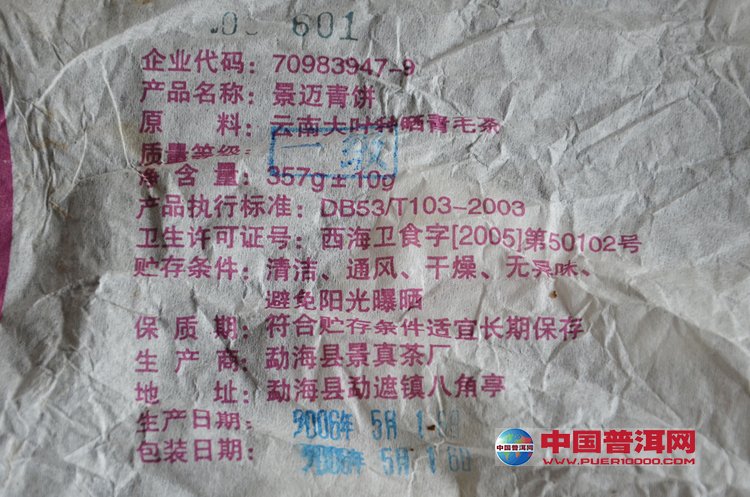 601
企业代码：70983947-9
产品名称：景迈青饼
原　　料：云南大叶种晒青毛茶
质量等级：一级
净 含 量：357g±10g
产品执行标准：DB53/T103-2003
卫生许可证号：西海卫食字[2005]第50102号
贮存条件：清洁、通风、干燥、无异味、
避免阳光曝晒
保 质 期：符合贮存条件适宜长期保存
生 产 商：勐海县景真茶厂
地　　址：勐海县勐遮镇八角亭
生产日期：2006年 5月 1 6日
包装日期：2006年 5月 1 6日
中国普洱网
中国普洱网
WWW.PUER10000.COM